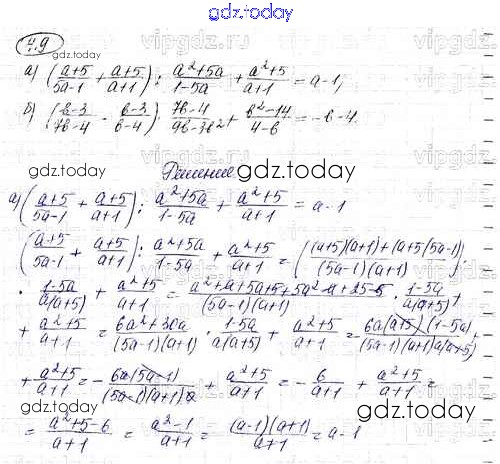 gdz.today
7.9
gdz.today
vipgdz.ru
а) ((a+5)/(5a-1) + (a+5)/(a+1)) : (a²+5a)/(1-5a) + (a²+5)/(a+1) = a-1;
б) ((b-3)/(7b-4) - (b-3)/(b-4)) · (7b-4)/(9b-3b²) + (b²-14)/(4-b) = -b-4.
Решение
gdz.today
а) ((a+5)/(5a-1) + (a+5)/(a+1)) : (a²+5a)/(1-5a) + (a²+5)/(a+1) = a-1
((a+5)/(5a-1) + (a+5)/(a+1)) : (a²+5a)/(1-5a) + (a²+5)/(a+1) = (((a+5)(a+1)+(a+5(5a-1))/((5a-1)(a+1))) ·
· (1-5a)/(a(a+5)) + (a²+5)/(a+1) = (a²+a+5a+5+5a²-a+25-5)/((5a-1)(a+1)) · (1-5a)/(a(a+5)) +
+ (a²+5)/(a+1) = (6a²+30a)/((5a-1)(a+1)) · (1-5a)/(a(a+5)) + (a²+5)/(a+1) = (6a(a+5)·(1-5a))/((5a-1)(a+1)a(a+5)) +
+ (a²+5)/(a+1) = - (6a(5a-1))/((5a-1)(a+1)a) + (a²+5)/(a+1) = - 6/(a+1) + (a²+5)/(a+1) =
gdz.today
gdz.today
= (a²+5-6)/(a+1) = (a²-1)/(a+1) = ((a-1)(a+1))/(a+1) = a-1